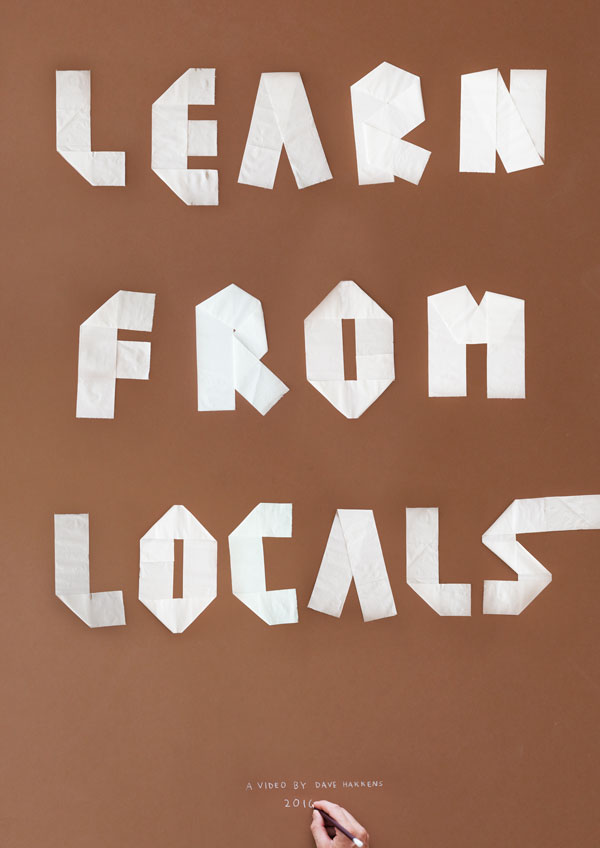 LEARN
FROM
LOCALS
A VIDEO BY DAVE HAKKENS
2016